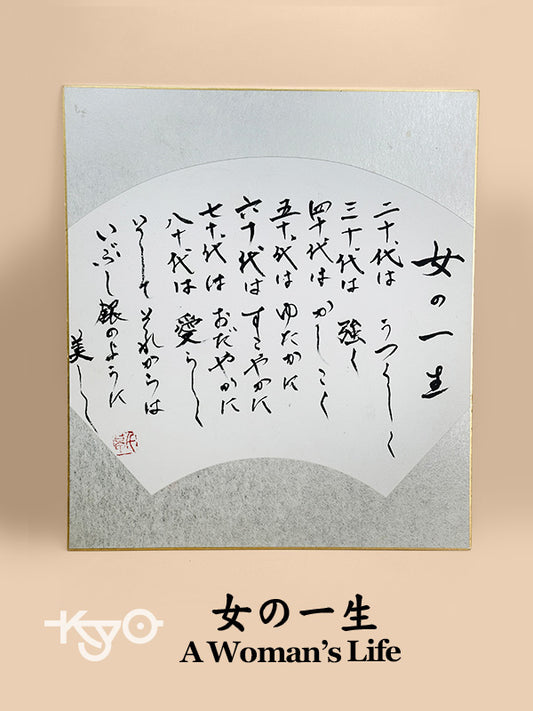 女の一生
二十代は うつくしく
三十代は 強く
四十代は かしこく
五十代は ゆたかに
六十代は すこやかに
七十代は おだやかに
八十代は 愛らしく
そしてそれからは
いぶし銀のように
美しく
KYO
女の一生
A Woman's Life